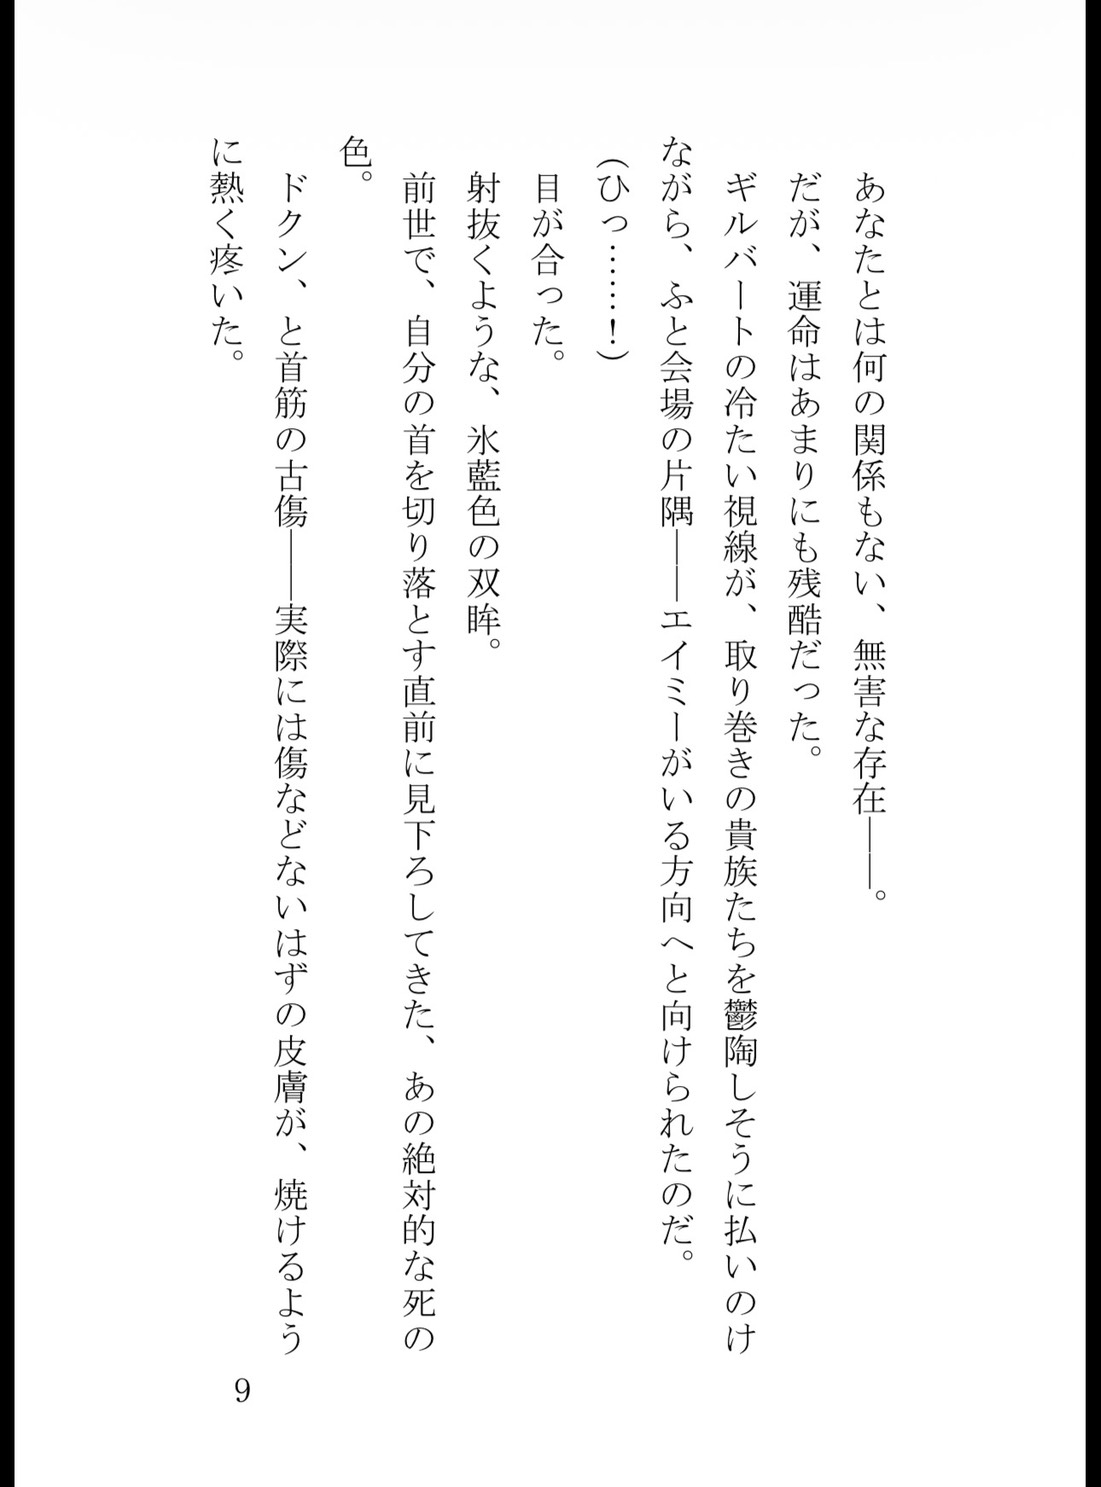 あなたとは何の関係もない、無害な存在――。
だが、運命はあまりにも残酷だった。
ギルバートの冷たい視線が、取り巻きの貴族たちを鬱陶しそうに払いのけ
ながら、ふと会場の片隅――エイミーがいる方向へと向けられたのだ。
(ひっ……！)
目が合った。
射抜くような、氷藍色の双眸。
前世で、自分の首を切り落とす直前に見下ろしてきた、あの絶対的な死の
色。
ドクン、と首筋の古傷――実際には傷などないはずの皮膚が、焼けるよう
に熱く疼いた。
9